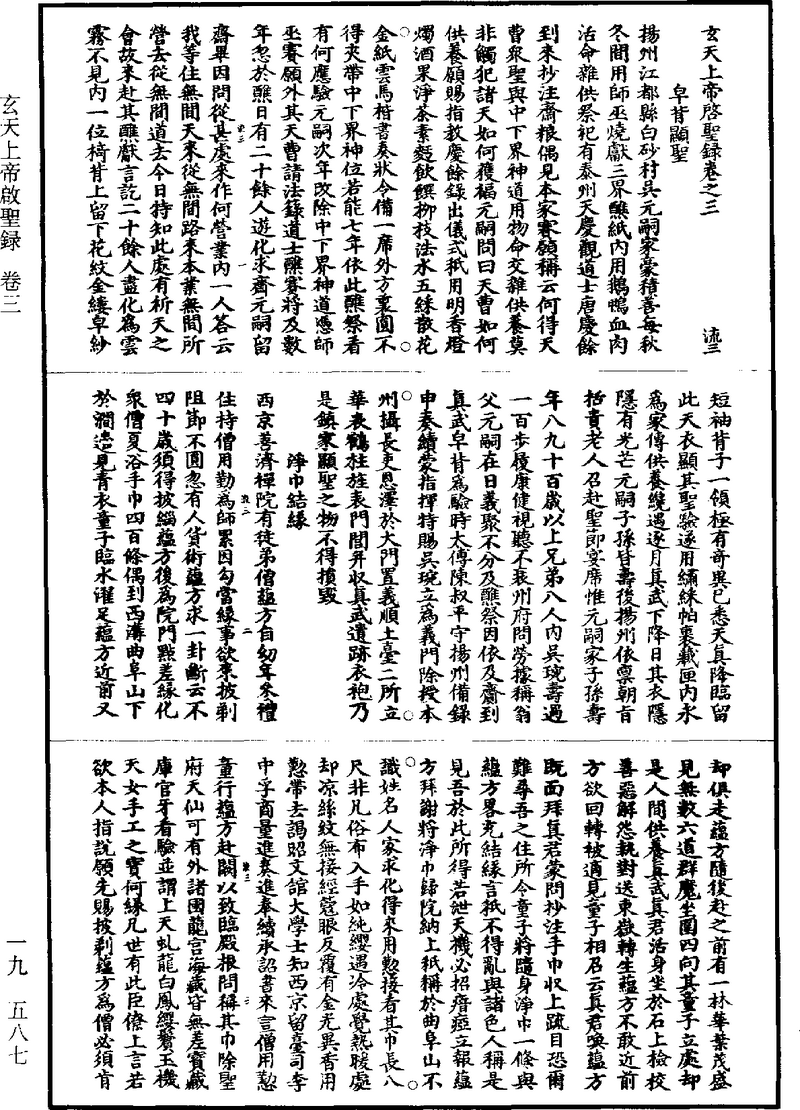 玄天上帝啓聖録卷之三
流三
皁背顯聖
揚州江都縣白砂村吳元嗣家豪積善每秋
冬間用師巫燒獻三界醮紙內用鵝鴨血肉
活命雜供祭祀有泰州天慶觀道士唐慶餘
到來抄注齋粮偶見本家賽願稱云何得天
曹衆聖與中下界神道用物命交雜供養莫
非觸犯諸天如何獲福元嗣問曰天曹如何
供養願賜指教慶餘錄出儀式秖用明香燈
燭酒果淨茶素麪飲饌柳枝法水五綵散花
金紙雲馬楮書奏狀今備一席外方裏圓不
得夾帶中下界神位若能七年依此醮祭看
有何應驗元嗣次年改除中下界神道憑師
巫賽願外其天曹請法籙道士醮賽將及數
年忽於醮日有二十餘人遊化求齋元嗣留
齋畢因問從甚處來作何營業內一人荅云
我等住無間天來從無間路來本業無間所
營去從無間道去今日特知此處有祈天之
會故來赴其醮獻言訖二十餘人盡化爲雲
霧不見內一位椅背上留下花紋金縷皁紗
短袖背子一領極有奇異已悉天真降臨留
此天衣顯其聖驗遂用繡綵帕裹藏匣內永
爲家傳供養纔遇逐月真武下降日其衣隱
隱有光芒元嗣子孫皆壽後揚州依禀朝旨
括責老人召赴聖節宴席惟元嗣家子孫壽
年八九十百歲以上兄弟八人內吳琬壽過
一百步履康健視聽不衰州府問勞據稱翁
父元嗣在日義聚不分及醮祭因依及齋到
真武皁背爲驗時太傅陳叔平守揚州備錄
申奏續蒙指揮特賜吳琬立爲義門除授本
州攝長史恩澤於大門置義順土臺二所立
華表鶴柱旌表門閭并収真武遺跡衣袍乃
是鎮家顯聖之物不得損毀
淨巾結緣
西京善濟禪院有徒弟僧藴方自幼年參禮
住持僧用勤爲師累因勾當緣事欲求披剃
阻節不圓忽有人貨術藴方求一卦斷云不
四十歲須得披緇藴方後爲院門點差緣化
衆僧夏浴手巾四百條偶到西溝曲阜山下
於澗邊見青衣童子臨水濯足藴方近前又
却俱走藴方隨後赴之前有一林華葉茂盛
見無數六道群魔坐圍四向其童子立處却
是人間供養真武真君活身坐於石上檢校
善惡解怨執對送東嶽轉生藴方不敢近前
方欲回轉被適見童子相召云真君喚藴方
既面拜真君蒙問抄注手巾収上疏目恐爾
難尋吾之住所令童子將隨身淨巾一條與
藴方畧充結緣言秖不得亂與諸色人稱是
見吾於此所得若泄天機必招瘖瘂立報藴
方拜謝將淨巾歸院納上秖稱於曲阜山不
識姓名人家求化得來用懃接看其巾長八
尺非凡俗布入手如純纓遇冷處覺熱暖處
却涼絲紋無接經蔻眼反覆有金光異香用
懃帶去謁昭文館大學士知西京留臺司李
中孚商量進奏進奉續承詔書來言僧用懃
童行藴方赴闕以致臨殿根問稱其巾除聖
府天仙可有外諸國龍宮海藏守無差寶藏
庫官牙看驗並謂上天虬龍白鳳纓鬢玉機
天女手工之寶何緣凡世有此臣僚上言若
欲本人指說願先賜披剃藴方爲僧必須肯
玄天上帝啟聖録 卷三
一九 五八七